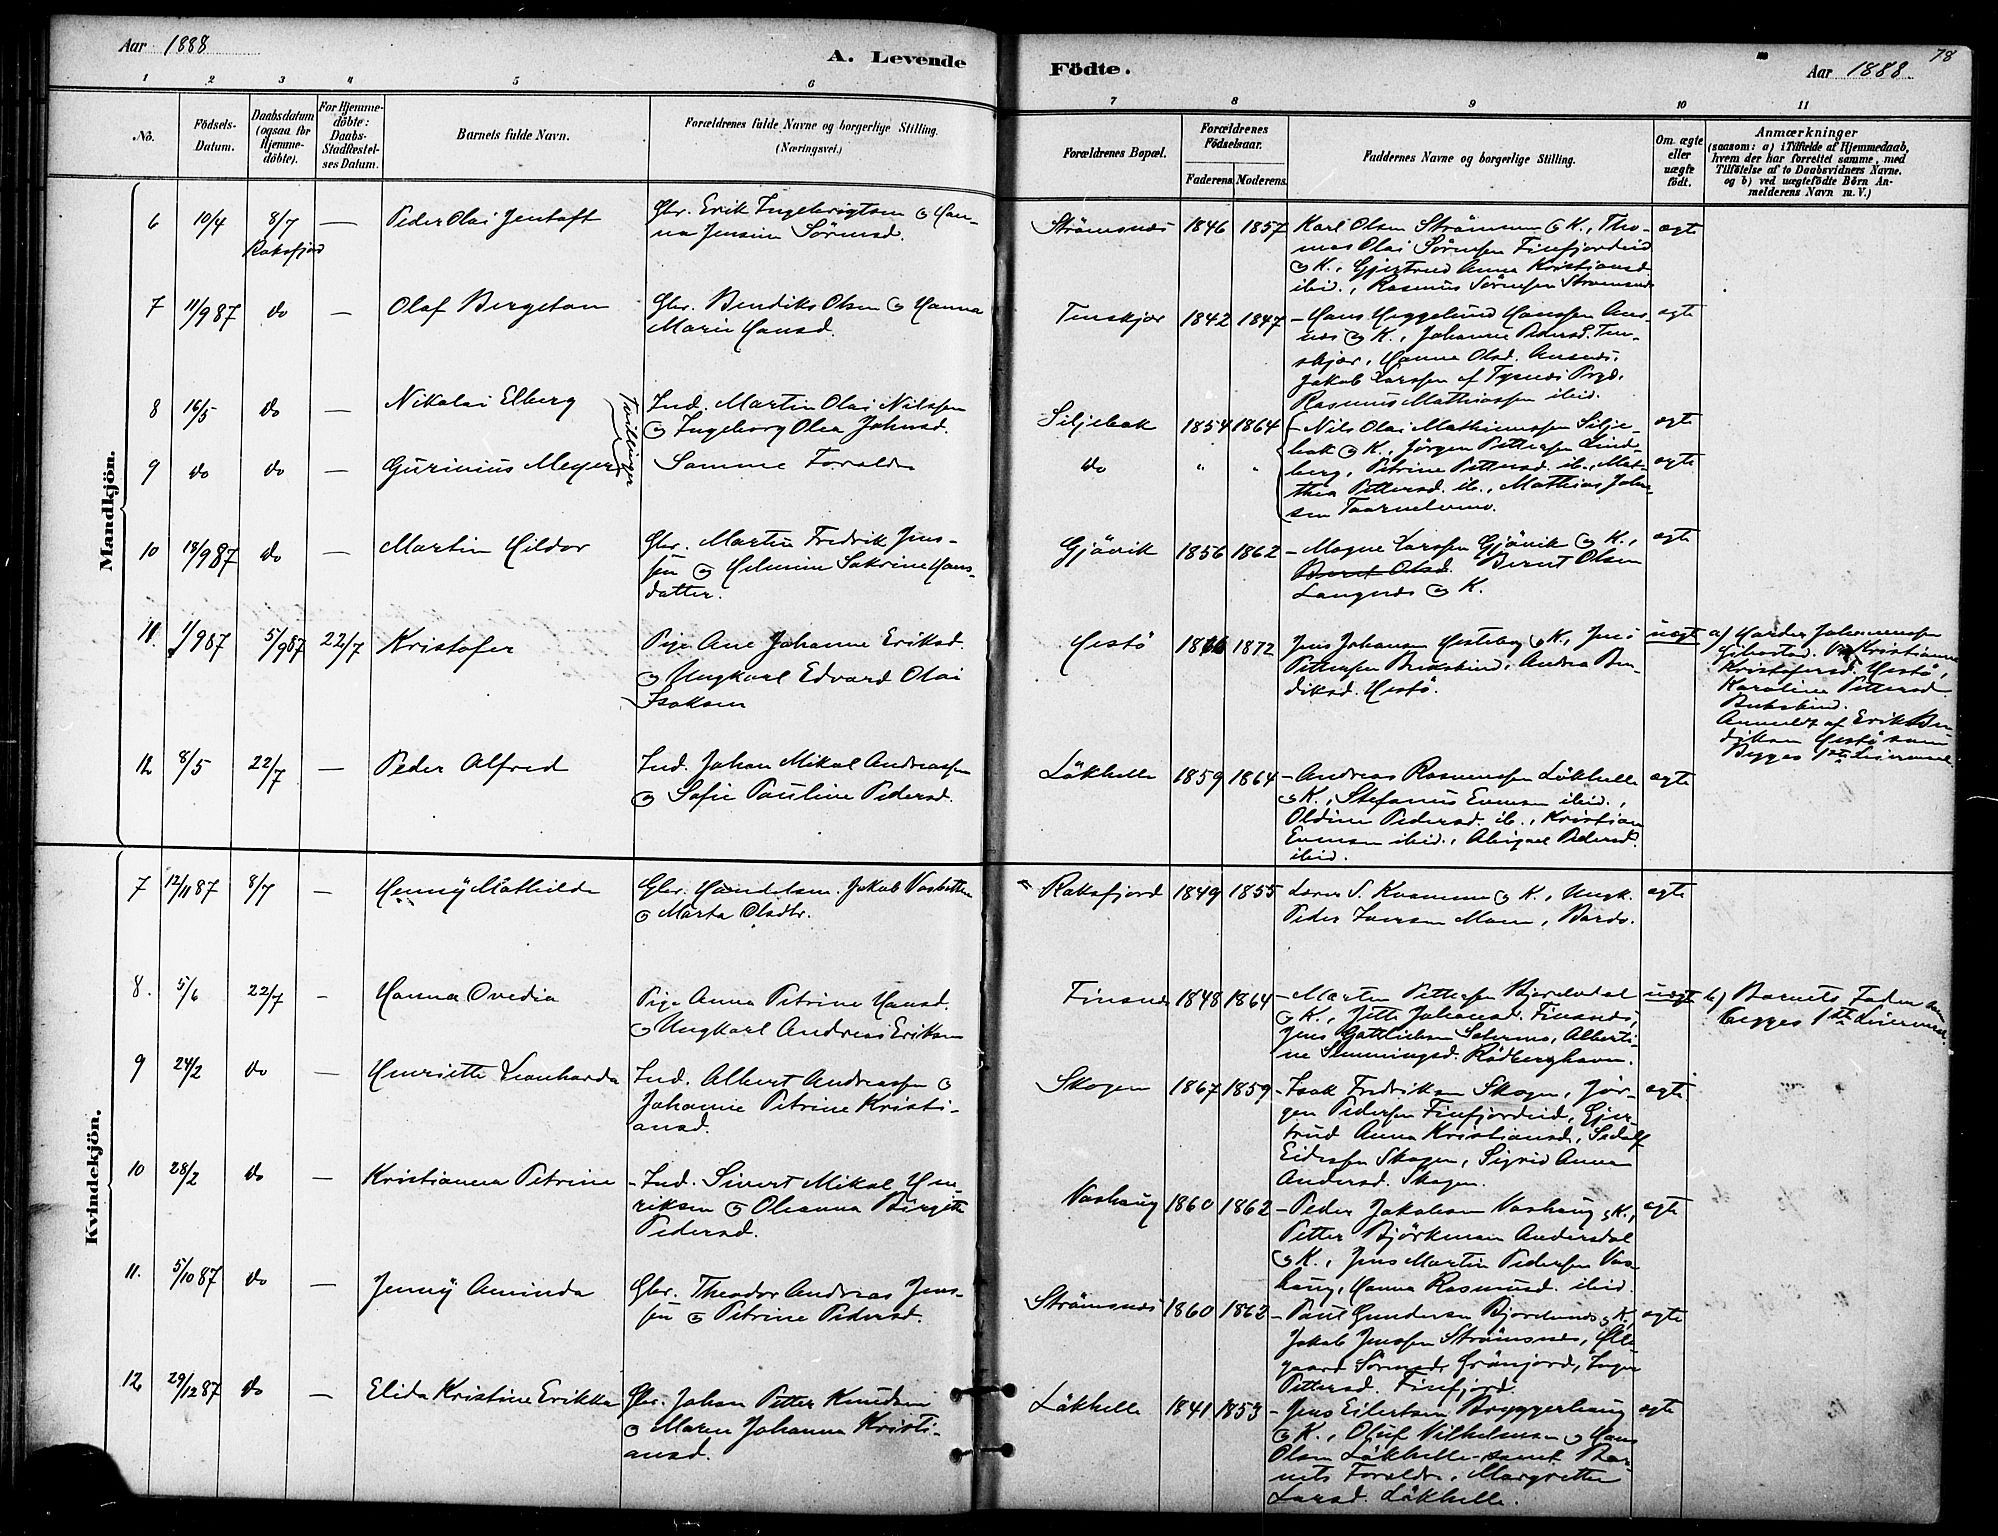 Aar 1888
A. Levende
Födte.
Aar 1888
78
1 2 3 4 5 6 7 8 9 10 11
No.
Födsels-
Datum.
Daabsdatum
(ogsaa for
Hjemme-
döbte).
For Hjemme-
döbte:
Daabs-
Stadfæstel-
ses Datum.
Barnets fulde Navn.
Forældrenes fulde Navne og borgerlige Stilling.
(Næringsvei.)
Forældrenes Bopæl.
Forældrenes
Födselsaar.
Faderens. Moderens.
Faddernes Navne og borgerlige Stilling.
Om ægte
eller
uægte
født.
Anmærkninger
(saasom: a) i Tilfælde af Hjemmedaab,
hvem der har forrettet samme, med
Tilföielse af to Daabsvidners Navne.
og b) ved uægtefödte Börn An-
melderens Navn m. V.)
Mandkjön.
6 10/4 8/7 — Peder Olai Jentoft
Gbr. Erik Ingebrigtsen & Han-
na Jensine Sörensd.
Strömsnes 1846 1857
Karl Olsen Strömmen & K., Tho-
mas Olai Sörensen Finfjordeid
& K., Gjertrud Anna Kristiansd.
ibid., Rasmus Sörensen Strömsnes
ægte
7 11/9 87 do — Olaf Bergeton
Gbr. Bendiks Olsen & Hanna
Marie Hansd.
Tenskjær 1842 1847
Hans Heggelund Hanssen Aus-
nes & K., Johanne Pedersd. Ten-
skjær, Hanna Olsd. Ausnes,
Jakob Larssen af Tysnes Prgj.
Rasmus Mathiassen ibid.
ægte
8 16/5 do — Nikolai Elberg
Tvillinger
Ind. Martin Olai Nilssen
& Ingeborg Olea Johnsd.
Siljebak 1854 1864
Nils Olai Mathiassen Silje-
bak & K., Jörgen Pettersen Lind-
berg, Petrine Pettersd. ib., Mat-
thea Pettersd. ib., Mathias John-
sen
ægte
9 do do — Gurinius Meyer
Samme Foraldr
do " "
ægte
10 18/9 87 do — Martin Hildor
Gbr. Martin Fredrik Jens-
sen & Helmine Sakrine Hans-
datter.
Gjövik 1856 1862
Mogne Larssen Gjövik & K.,
Berit Olsd. Bernt Olsen
Langnes & K.
ægte
11. 1/9 87 5/9 87 22/7 Kristofer
Pige Ane Johanne Eriksd.
& Ungkarl Edvard Olai
Isaksen
Hestö 1866 1872
Jens Johansen & K., Jens
Pettersen Bukskind, Andrea Ben-
diksd. Hestö.
uægte
a) Hardes Johannessen
Gibostad. Kristianna
Kristofersd. Hestö,
Karoline Pettersd.
Bukskind.
Anmeldt af Erik Ben-
diksen Hestö som
Begges 1ste Leiermaal.
12 8/5 22/7 — Peder Alfred
Ind. Johan Mikal Andreassen
& Sofie Pauline Pedersd.
Läkhelle 1859 1864
Andreas Rasmussen Läkhelle
& K., Stefanus Evensen ibid.,
Oldine Pedersd. ib., Kristian
Evensen ibid., Abigael Pedersd.
ibid.
ægte
Kvindekjön.
7 12/11 87 8/7 — Henny Mathilde
Gbr. Handelsm. Jakob Vasbotten
& Marta Olsdtr.
Raksfjord 1849 1855
Lærer S. Kvamme & K., Ungk.
Peder Larssen Moen, Bardo.
ægte
8. 5/6 22/7 — Hanna Ovedia
Pige Anna Petrine Hansd.
& Ungkarl Andreas Eriksen
Finsnes 1848 1864
Marten Pettersen Bjorelvdal
& K., Jette Johansd. Finsnes,
Jens Gottliebsen, Alberti-
ne Semmingsd. Rödberghavn.
uægte
b) Barnets Fader som
begges 1ste Leiermaal.
9 24/2 do — Henriette Leonharda
Ind. Albert Andreassen &
Johanne Petrine Kristi-
ansd.
Skogen 1867 1859
Isak Fredriksen Skogen, Jör-
gen Pedersen Finfjordeid, Gjer-
trud Anna Kristiansd., Sedolf
Eidesen Skogen, Sigrid Anna
Andersd. Skogen.
ægte
10 28/2 do — Kristianna Petrine
Ind. Sivert Mikal Hen-
riksen & Oleanna Birgitte
Pedersd.
Vashaug 1860 1862
Peder Jakobsen Vashaug & K.,
Petter Björkman Andersdal
& K., Jens Martin Pedersen Vas-
haug, Hanna Rasmusd. ibid.
ægte
11. 5/10 87 do — Jenny Aminda
Gbr. Theodor Andreas Jens-
sen & Petrine Pedersd.
Strömsnes 1860 1862
Paul Gundersen Bjorelvnes & K.,
Jakob Jenssen Strömsnes, Olle-
gaard Sörensdr Grönjord, Inger
Pettersd. Finfjord.
ægte
12 29/12 87 do — Elida Kristine Erikka
Gbr. Johan Petter Knudsen
& Maren Johanna Kristi-
ansd.
Läkhelle 1841 1853
Jens Eilertsen Bryggerhaug
& K., Oluf Vilhelmsen & Hans
Olsen Läkhelle samt Bar-
nets Foraldre, Margrethe
Larsd. Läkhelle.
ægte